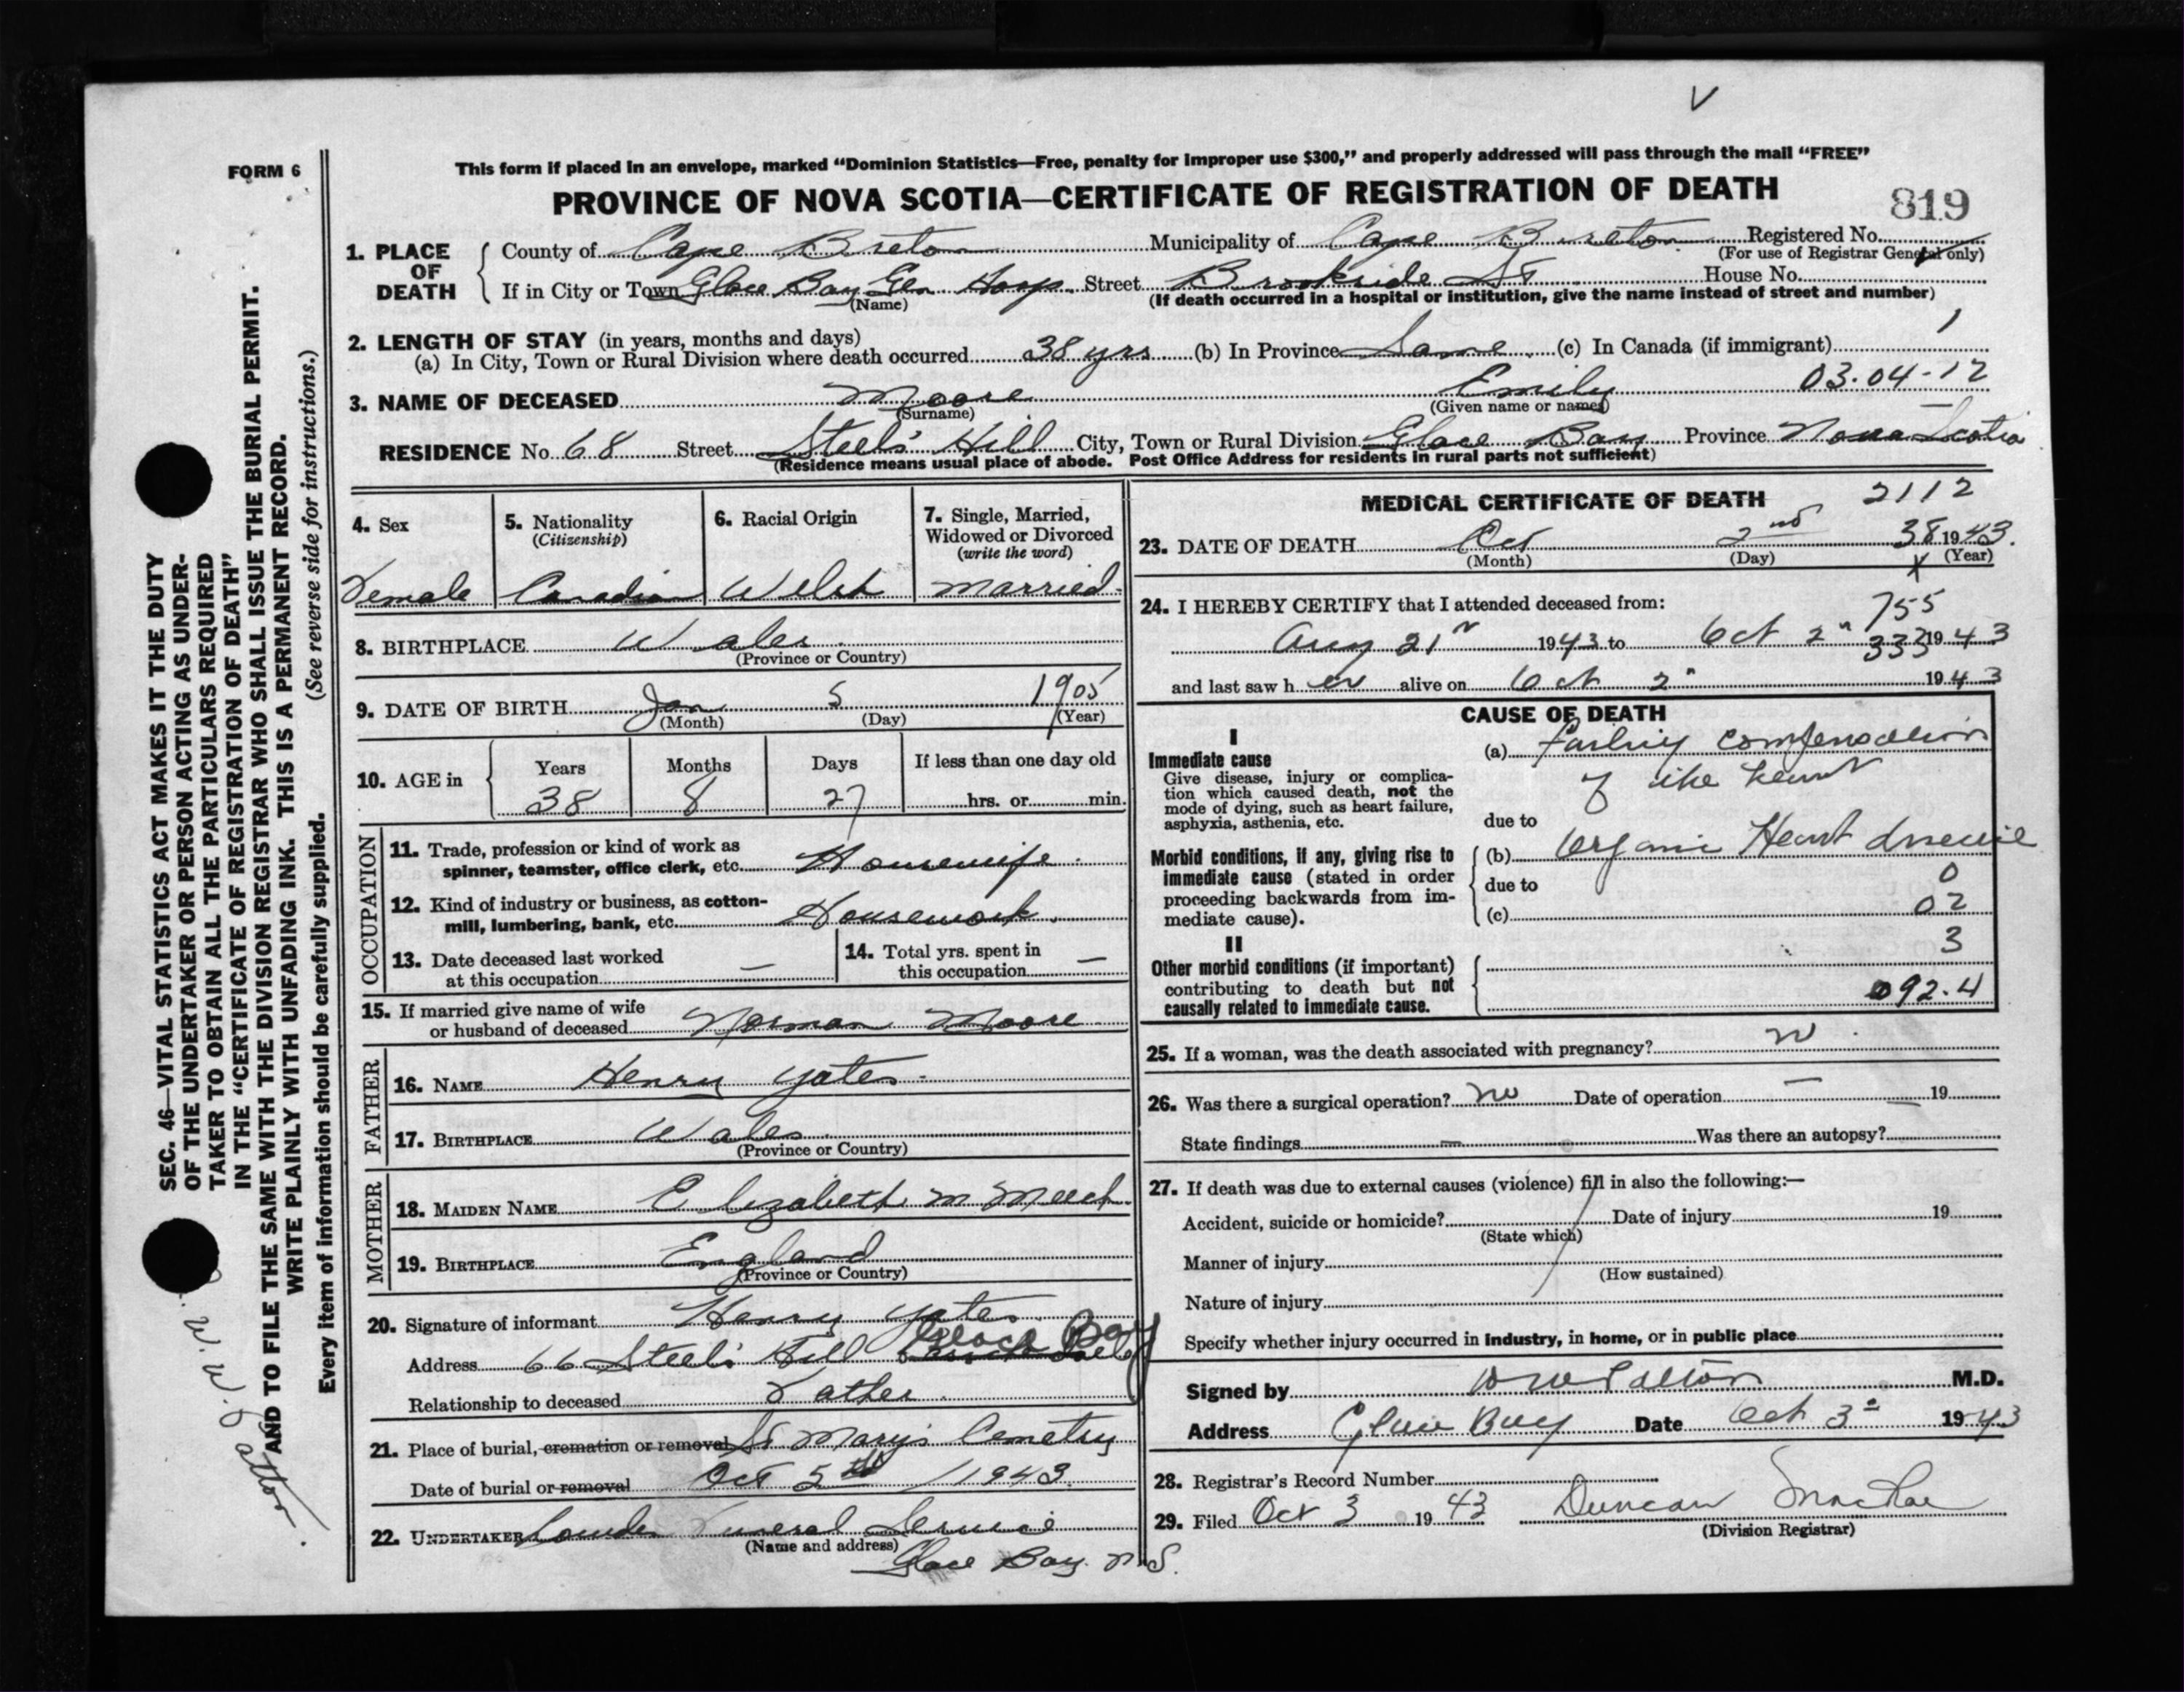 V
FORM 6
This form if placed in an envelope, marked “Dominion Statistics—Free, penalty for improper use $300,” and properly addressed will pass through the mail “FREE”
PROVINCE OF NOVA SCOTIA—CERTIFICATE OF REGISTRATION OF DEATH
819
1. PLACE OF DEATH { County of Cape Breton Municipality of Cape Breton Registered No.
(For use of Registrar General only)
If in City or Town Glace Bay Gen Hosp. Street Brookside St House No.
(Name) (If death occurred in a hospital or institution, give the name instead of street and number)
2. LENGTH OF STAY (in years, months and days) 1
(a) In City, Town or Rural Division where death occurred 38 yrs (b) In Province Same (c) In Canada (if immigrant)
3. NAME OF DECEASED Moore Emily 03.04-12
(Surname) (Given name or names)
RESIDENCE No. 68 Street Steel's Hill City, Town or Rural Division Glace Bay Province Nova Scotia
(Residence means usual place of abode. Post Office Address for residents in rural parts not sufficient)
4. Sex
Female
5. Nationality
(Citizenship)
Canadian
6. Racial Origin
Welsh
7. Single, Married,
Widowed or Divorced
(write the word)
Married.
8. BIRTHPLACE Wales
(Province or Country)
9. DATE OF BIRTH Jan 5 1905
(Month) (Day) (Year)
10. AGE in { Years Months Days If less than one day old
38 8 27 hrs. or min.
OCCUPATION
11. Trade, profession or kind of work as
spinner, teamster, office clerk, etc. Housewife.
12. Kind of industry or business, as cotton-
mill, lumbering, bank, etc. Housework.
13. Date deceased last worked
at this occupation —
14. Total yrs. spent in
this occupation —
15. If married give name of wife
or husband of deceased Norman Moore
FATHER
16. NAME Henry Yates
17. BIRTHPLACE Wales
(Province or Country)
MOTHER
18. MAIDEN NAME Elizabeth M Meech
19. BIRTHPLACE England
(Province or Country)
20. Signature of informant Henry Yates
Address 66 Steel's Hill Glace Bay
Relationship to deceased Father
21. Place of burial, cremation or removal St Mary's Cemetry
Date of burial or removal Oct 5th / 1943.
22. UNDERTAKER Funeral Service
(Name and address)
Glace Bay. N.S.
MEDICAL CERTIFICATE OF DEATH 2112
23. DATE OF DEATH Oct 2nd 38 1943.
(Month) (Day) (Year)
X
24. I HEREBY CERTIFY that I attended deceased from: 755
Aug 21 1943 to Oct 2" 333 1943
and last saw h er alive on Oct 2" 1943
CAUSE OF DEATH
I
Immediate cause
Give disease, injury or complica-
tion which caused death, not the
mode of dying, such as heart failure,
asphyxia, asthenia, etc.
(a) Failing compensation
of the heart
due to
Morbid conditions, if any, giving rise to
immediate cause (stated in order
proceeding backwards from im-
mediate cause).
(b) Organic Heart disease
due to 0
(c) 02
II
Other morbid conditions (if important)
contributing to death but not
causally related to immediate cause.
3
092.4
25. If a woman, was the death associated with pregnancy? no
26. Was there a surgical operation? no Date of operation — 19
State findings — Was there an autopsy?
27. If death was due to external causes (violence) fill in also the following:—
Accident, suicide or homicide? Date of injury 19
(State which)
Manner of injury
(How sustained)
Nature of injury
Specify whether injury occurred in industry, in home, or in public place
Signed by M.D.
Address Glace Bay Date Oct 3 1943
28. Registrar's Record Number
29. Filed Oct 3 1943 Duncan MacRae
(Division Registrar)
SEC. 46—VITAL STATISTICS ACT MAKES IT THE DUTY
OF THE UNDERTAKER OR PERSON ACTING AS UNDER-
TAKER TO OBTAIN ALL THE PARTICULARS REQUIRED
IN THE “CERTIFICATE OF REGISTRATION OF DEATH”
AND TO FILE THE SAME WITH THE DIVISION REGISTRAR WHO SHALL ISSUE THE BURIAL PERMIT.
WRITE PLAINLY WITH UNFADING INK. THIS IS A PERMANENT RECORD.
Every item of information should be carefully supplied. (See reverse side for instructions.)